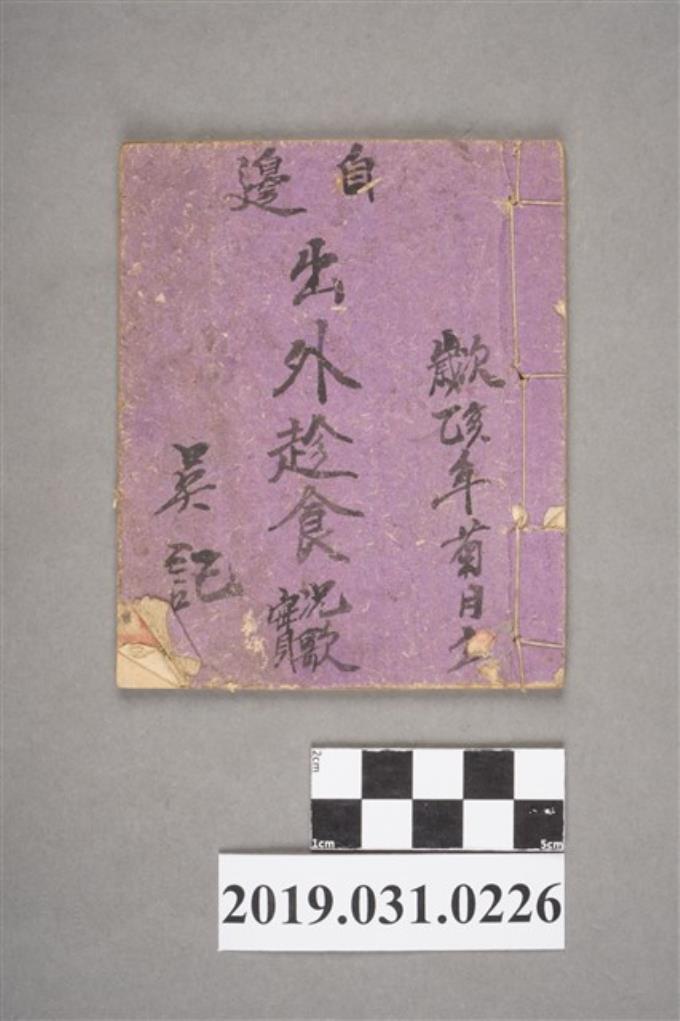 自邊
歲次乙亥年菊月立
出外趁食實況歌
吳記
2cm
1cm
5cm
2019.031.0226